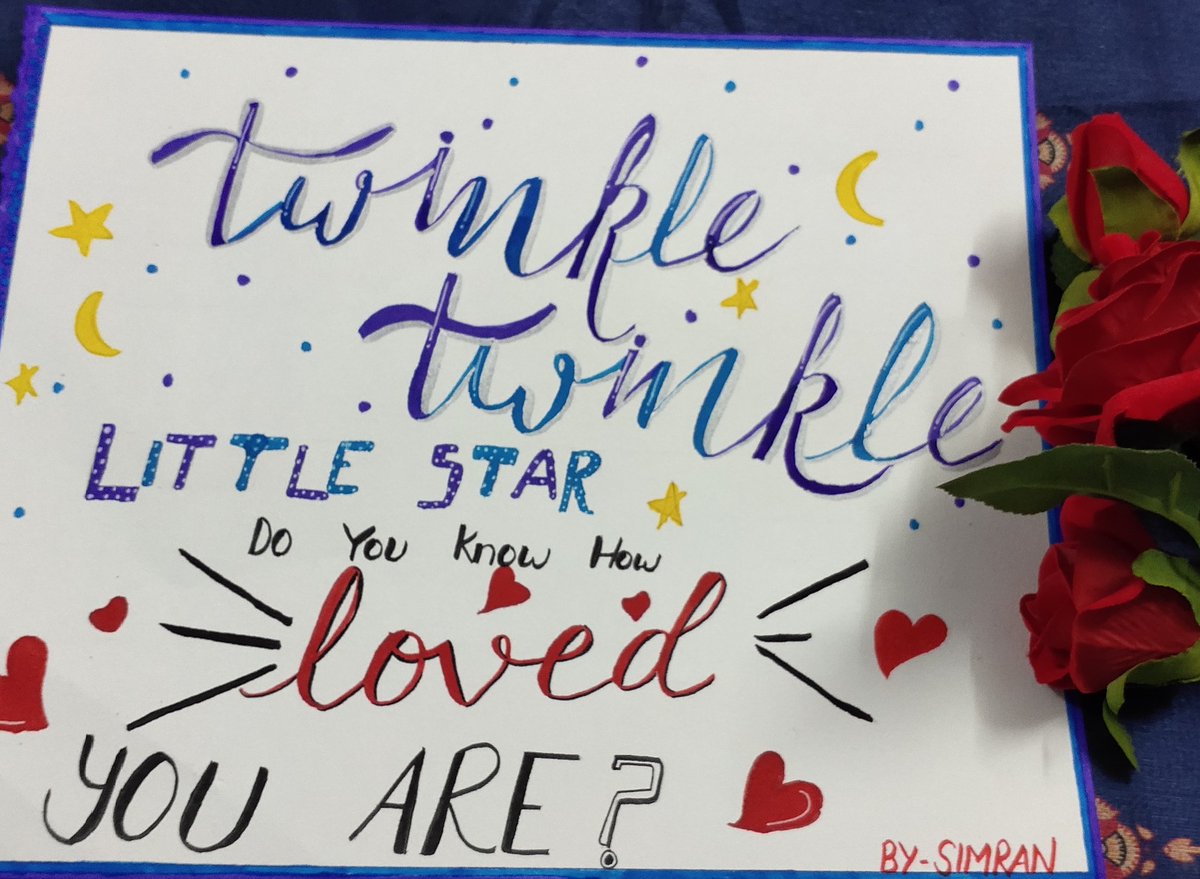 twinkle
twinkle
LITTLE STAR
Do You Know How
loved
YOU ARE?
BY-SIMRAN